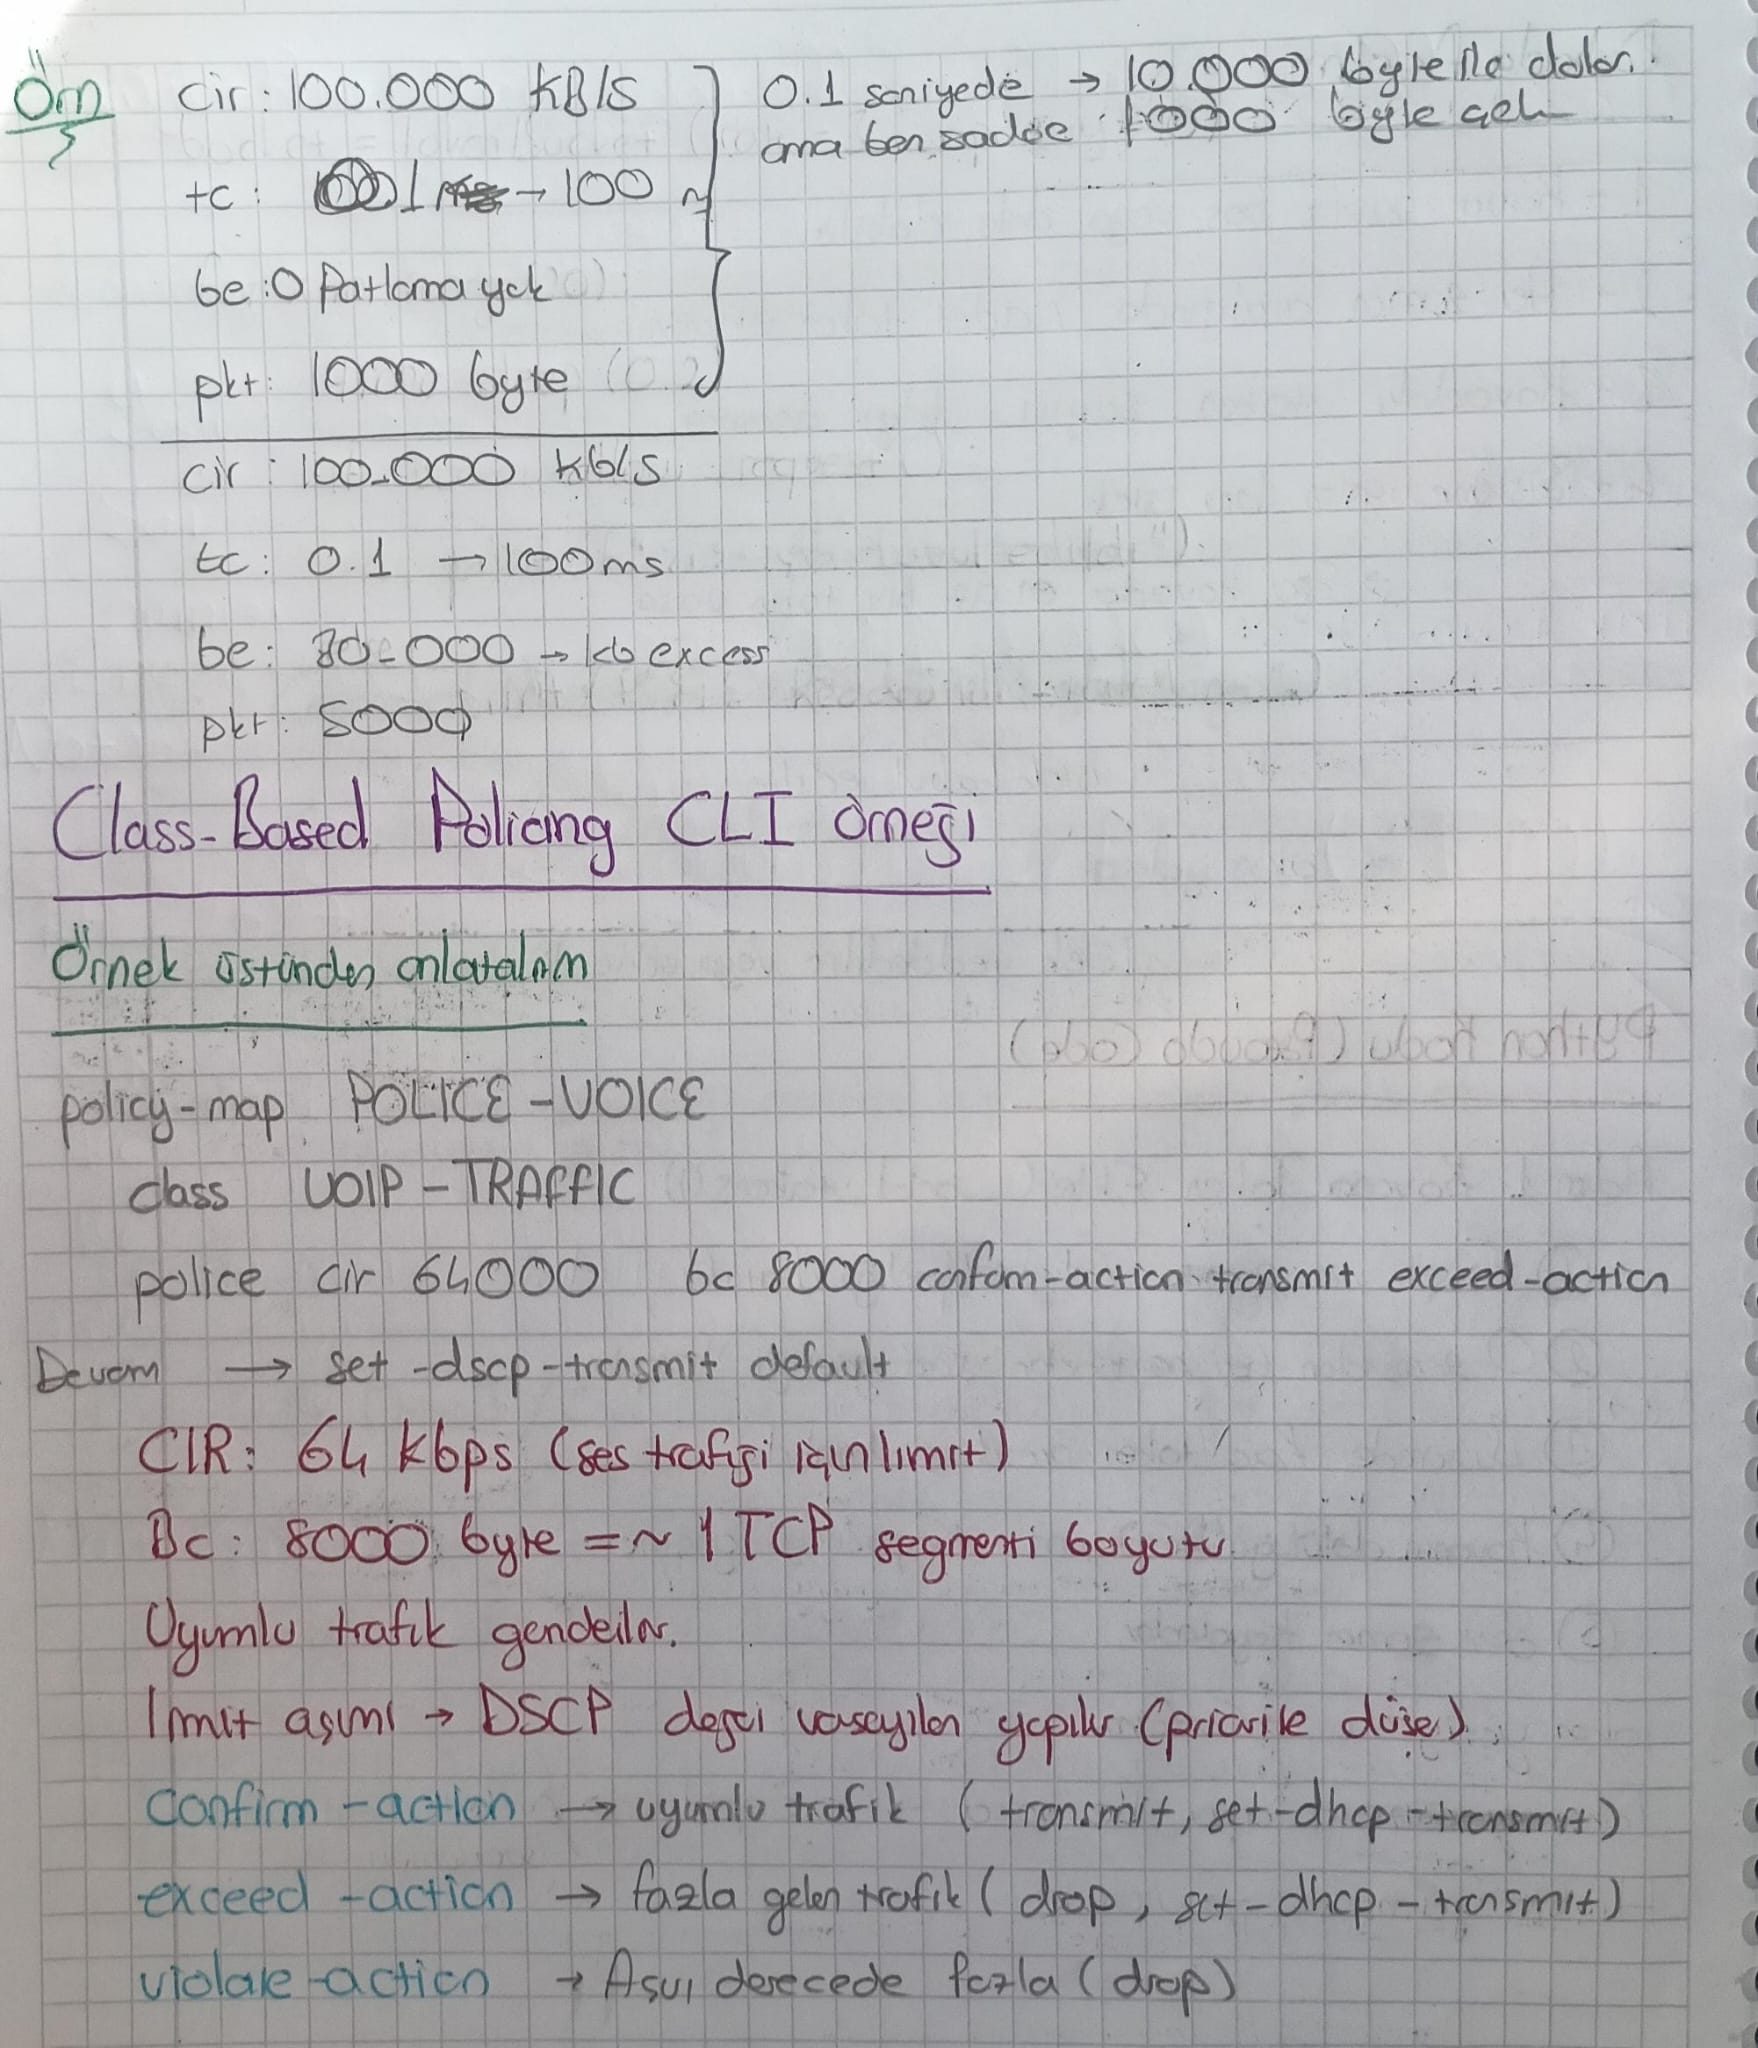 Örn
cir: 100.000 KB/s
0.1 saniyede → 10.000 byte ile dolar.
ama ben sadece 1000 byte geln
tc: 1 → 100
be: 0 Patlama yok
pkt: 1000 byte
cir: 100.000 kb/s
tc: 0.1 → 100ms
be: 80.000 → kb excess
pkt: 5000
Class-Based Policing CLI örneği
Örnek üstünden anlatalım
policy-map POLICE-VOICE
class VOIP-TRAFFIC
police cir 64000 bc 8000 confom-action transmit exceed-action
Devam → set-dscp-transmit default
CIR: 64 kbps (ses trafiği için limit)
Bc: 8000 byte =~ 1 TCP segmenti boyutu
Uyumlu trafik gönderilir.
limit aşımı → DSCP değeri yapılır (priorite düşer)
confirm-action → uyumlu trafik (transmit, set-dhcp-transmit)
exceed-action → fazla gelen trafik (drop, set-dhcp-transmit)
violate-action → Aşırı derecede fazla (drop)